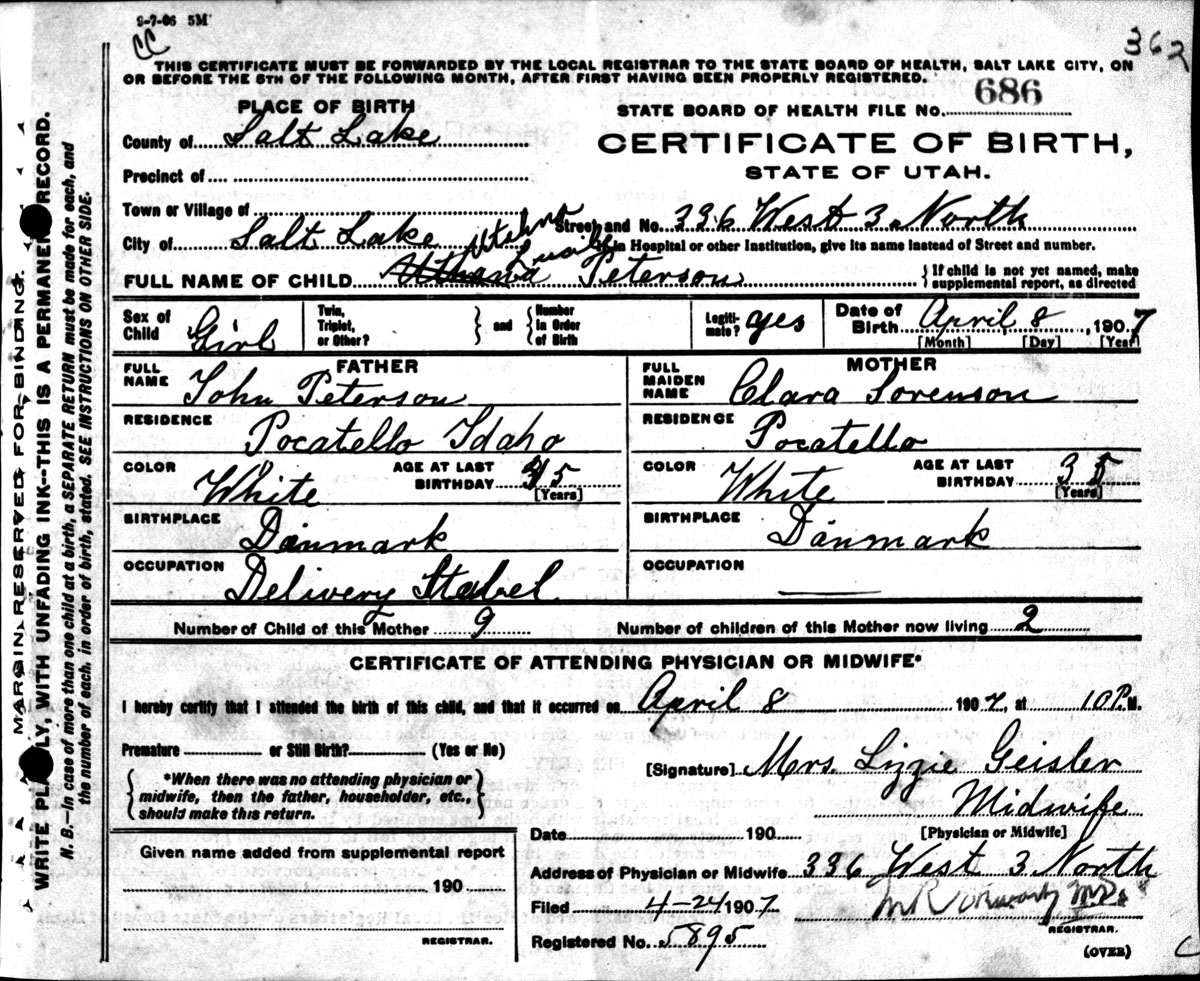 9-7-06 5M
CC
362
THIS CERTIFICATE MUST BE FORWARDED BY THE LOCAL REGISTRAR TO THE STATE BOARD OF HEALTH, SALT LAKE CITY, ON
OR BEFORE THE 5TH OF THE FOLLOWING MONTH, AFTER FIRST HAVING BEEN PROPERLY REGISTERED.
PLACE OF BIRTH
STATE BOARD OF HEALTH FILE NO. 686
County of Salt Lake
CERTIFICATE OF BIRTH,
STATE OF UTAH.
Precinct of
Town or Village of
Street and No. 336 West 3 North
City of Salt Lake
If in Hospital or other Institution, give its name instead of Street and number.
Lucile
FULL NAME OF CHILD Peterson
{ If child is not yet named, make
supplemental report, as directed
Sex of Child Girl
Twin, Triplet, or Other? } and { Number in Order of Birth
Legiti-mate? yes
Date of Birth April 8, 1907
[Month] [Day] [Year]
FATHER
FULL NAME John Peterson
RESIDENCE Pocatello Idaho
COLOR White AGE AT LAST BIRTHDAY 5
[Years]
BIRTHPLACE Danmark
OCCUPATION Delivery Stabel
MOTHER
FULL MAIDEN NAME Clara Sorenson
RESIDENCE Pocatello
COLOR White AGE AT LAST BIRTHDAY 35
[Years]
BIRTHPLACE Danmark
OCCUPATION
Number of Child of this Mother 9 Number of children of this Mother now living 2
CERTIFICATE OF ATTENDING PHYSICIAN OR MIDWIFE*
I hereby certify that I attended the birth of this child, and that it occurred on April 8 1907, at 10 P. M.
Premature or Still Birth? (Yes or No)
[Signature] Mrs. Lizzie Geisler
*When there was no attending physician or
midwife, then the father, householder, etc.,
should make this return.
Midwife
Date 190 [Physician or Midwife]
Given name added from supplemental report
190
REGISTRAR.
Address of Physician or Midwife 336 West 3 North
Filed 4-24 1907 M.D.
REGISTRAR.
Registered No. 5895
(OVER)
C
MARGIN RESERVED FOR BINDING.
WRITE PLAINLY, WITH UNFADING INK--THIS IS A PERMANENT RECORD.
N. B.—In case of more than one child at a birth, a SEPARATE RETURN must be made for each, and
the number of each, in order of birth, stated. SEE INSTRUCTIONS ON OTHER SIDE.